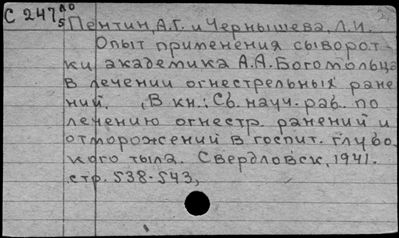 С 247 Пентин, А.Г. и Чернышева, Л.И.
5
Опыт применения сыворот
ки академика А.А. Богомольца
в лечении огнестрельных ране
ний. , В кн.: Сб. науч. раб. по
лечению огнестр. ранений и
отморожений в госпит. глубо
кого тыла. Свердловск, 1941.
стр. 538-543,